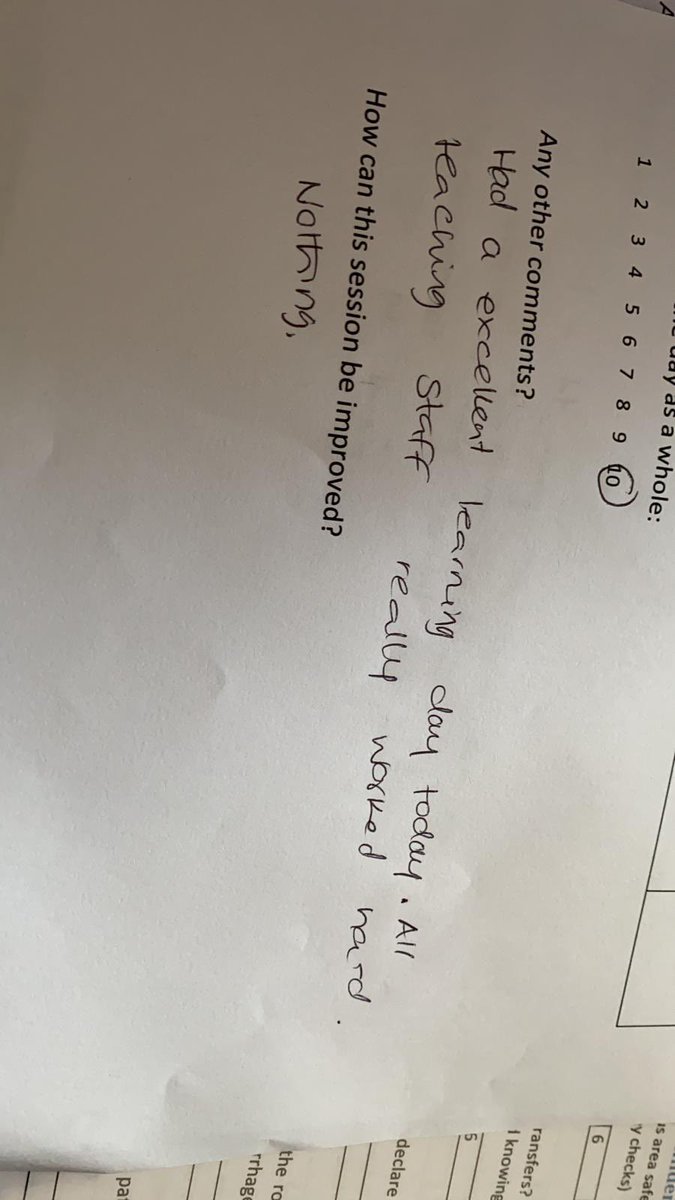 day as a whole:
1 2 3 4 5 6 7 8 9 10
Any other comments?
Had a excellent learning day today. All
teaching staff really worked hard.
How can this session be improved?
Nothing.
is area
checks)
6
ransfers?
knowing
5
declare
the